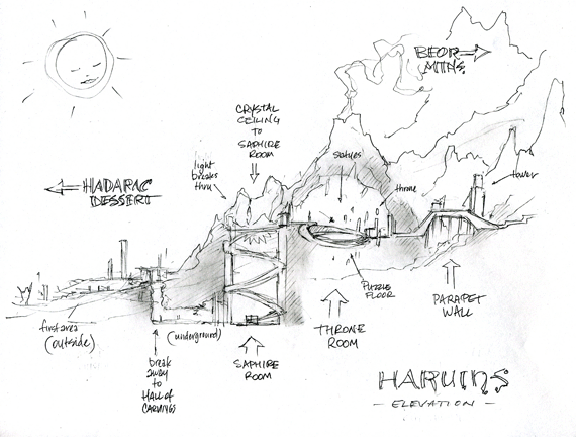 BEOR
MTNS.
CRYSTAL
CEILING
TO
SAPHIRE
ROOM
light
breaks
thru
statues
throne
tower
HADARAC
DESSERT
PUZZLE
FLOOR
PARAPET
WALL
first area
(outside)
(underground)
THRONE
ROOM
break
away
to
HALL OF
CARVINGS
SAPHIRE
ROOM
HARUINS
- ELEVATION -